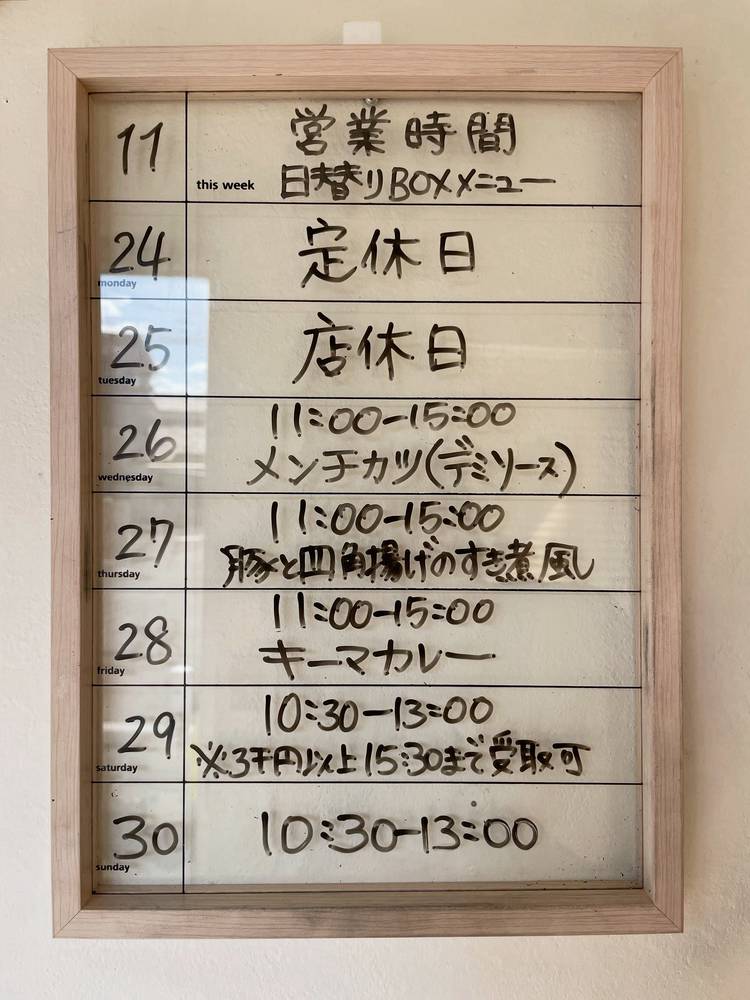 11 営業時間
this week 日替りBOXメニュー
24 定休日
monday
25 店休日
tuesday
11:00-15:00
26 メンチカツ(デミソース)
wednesday
11:00-15:00
27 豚と四角揚げのすき煮風
thursday
11:00-15:00
28 キーマカレー
friday
10:30-13:00
29 ※3千円以上15:30まで受取可
saturday
30 10:30-13:00
sunday